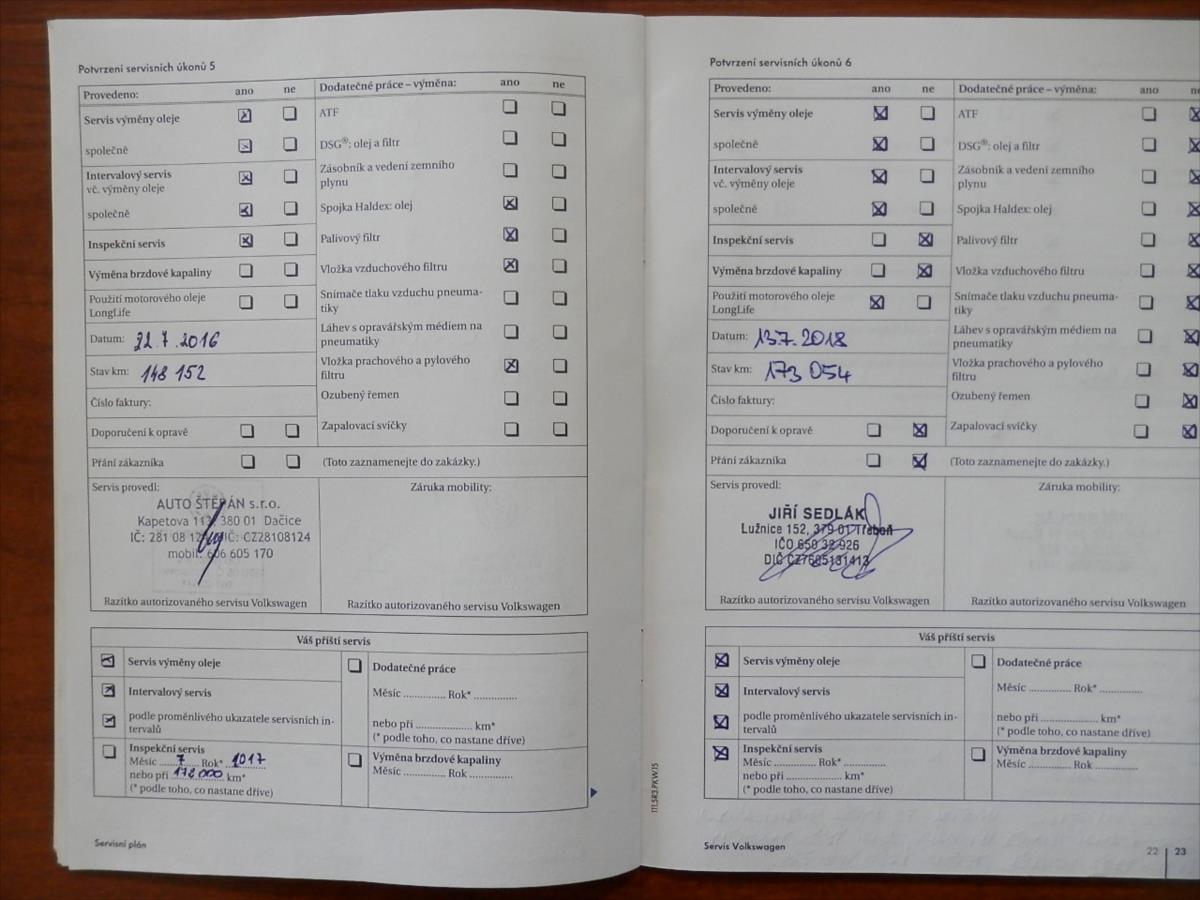 Potvrzení servisních úkonů 5
Provedeno: ano ne
Dodatečné práce – výměna: ano ne
Servis výměny oleje
společně
Intervalový servis
vč. výměny oleje
společně
Inspekční servis
Výměna brzdové kapaliny
Použití motorového oleje
LongLife
Datum: 22.7.2016
Stav km: 148 152
Číslo faktury:
Doporučení k opravě
Přání zákazníka
ATF
DSG®: olej a filtr
Zásobník a vedení zemního
plynu
Spojka Haldex: olej
Palivový filtr
Vložka vzduchového filtru
Snímače tlaku vzduchu pneuma-
tiky
Láhev s opravářským médiem na
pneumatiky
Vložka prachového a pylového
filtru
Ozubený řemen
Zapalovací svíčky
(Toto zaznamenejte do zakázky.)
Servis provedl:
AUTO ŠTĚPÁN s.r.o.
Kapetova 113, 380 01 Dačice
IČ: 281 08 124 DIČ: CZ28108124
mobil: 606 605 170
Razítko autorizovaného servisu Volkswagen
Záruka mobility:
Razítko autorizovaného servisu Volkswagen
Váš příští servis
Servis výměny oleje
Intervalový servis
podle proměnlivého ukazatele servisních in-
tervalů
Inspekční servis
Měsíc ...7... Rok* 1017
nebo při 178 000 km*
(* podle toho, co nastane dříve)
Dodatečné práce
Měsíc .............. Rok* ..............
nebo při .................. km*
(* podle toho, co nastane dříve)
Výměna brzdové kapaliny
Měsíc .............. Rok ..............
Servisní plán
Potvrzení servisních úkonů 6
Provedeno: ano ne
Dodatečné práce – výměna: ano
Servis výměny oleje
společně
Intervalový servis
vč. výměny oleje
společně
Inspekční servis
Výměna brzdové kapaliny
Použití motorového oleje
LongLife
Datum: 13.7.2018
Stav km: 173 054
Číslo faktury:
Doporučení k opravě
Přání zákazníka
ATF
DSG®: olej a filtr
Zásobník a vedení zemního
plynu
Spojka Haldex: olej
Palivový filtr
Vložka vzduchového filtru
Snímače tlaku vzduchu pneuma-
tiky
Láhev s opravářským médiem na
pneumatiky
Vložka prachového a pylového
filtru
Ozubený řemen
Zapalovací svíčky
(Toto zaznamenejte do zakázky.)
Servis provedl:
JIŘÍ SEDLÁK
Lužnice 152, 379 01 Třeboň
IČO 650 32 926
DIČ CZ7605131413
Razítko autorizovaného servisu Volkswagen
Záruka mobility:
Razítko autorizovaného servisu Volkswagen
Váš příští servis
Servis výměny oleje
Intervalový servis
podle proměnlivého ukazatele servisních in-
tervalů
Inspekční servis
Měsíc .............. Rok* ..............
nebo při .................. km*
(* podle toho, co nastane dříve)
Dodatečné práce
Měsíc .............. Rok* ..............
nebo při .................. km*
(* podle toho, co nastane dříve)
Výměna brzdové kapaliny
Měsíc .............. Rok ..............
111.5R3.PKW.15
Servis Volkswagen
22 23